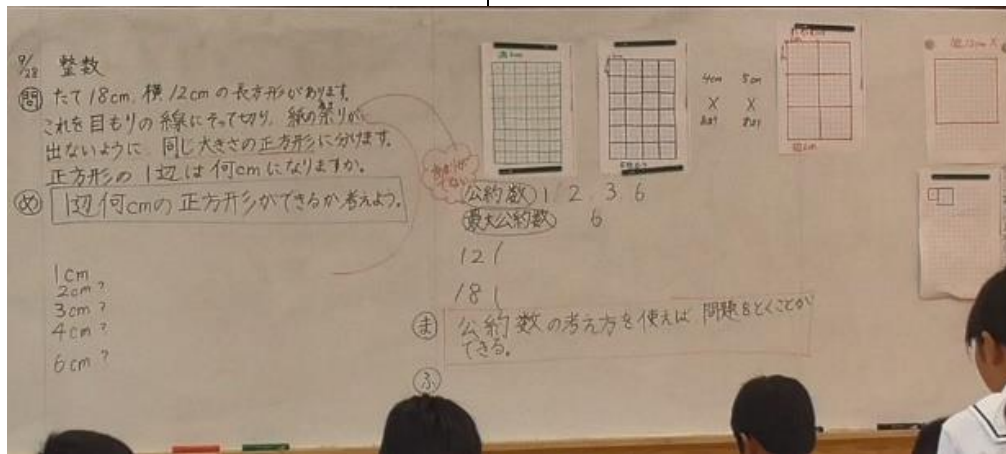 9/28 整数
問 たて18cm、横12cmの長方形があります。
これを目もりの線にそって切り、紙の余りが
出ないように、同じ大きさの正方形に分けます。
正方形の1辺は何cmになりますか。
め 1辺何cmの正方形ができるか考えよう。
1cm
2cm?
3cm?
4cm?
6cm?
4cm 5cm
× ×
公約数 1, 2, 3, 6
最大公約数 6
12(
18(
ま 公約数の考え方を使えば 問題をとくことが
できる。
ふ